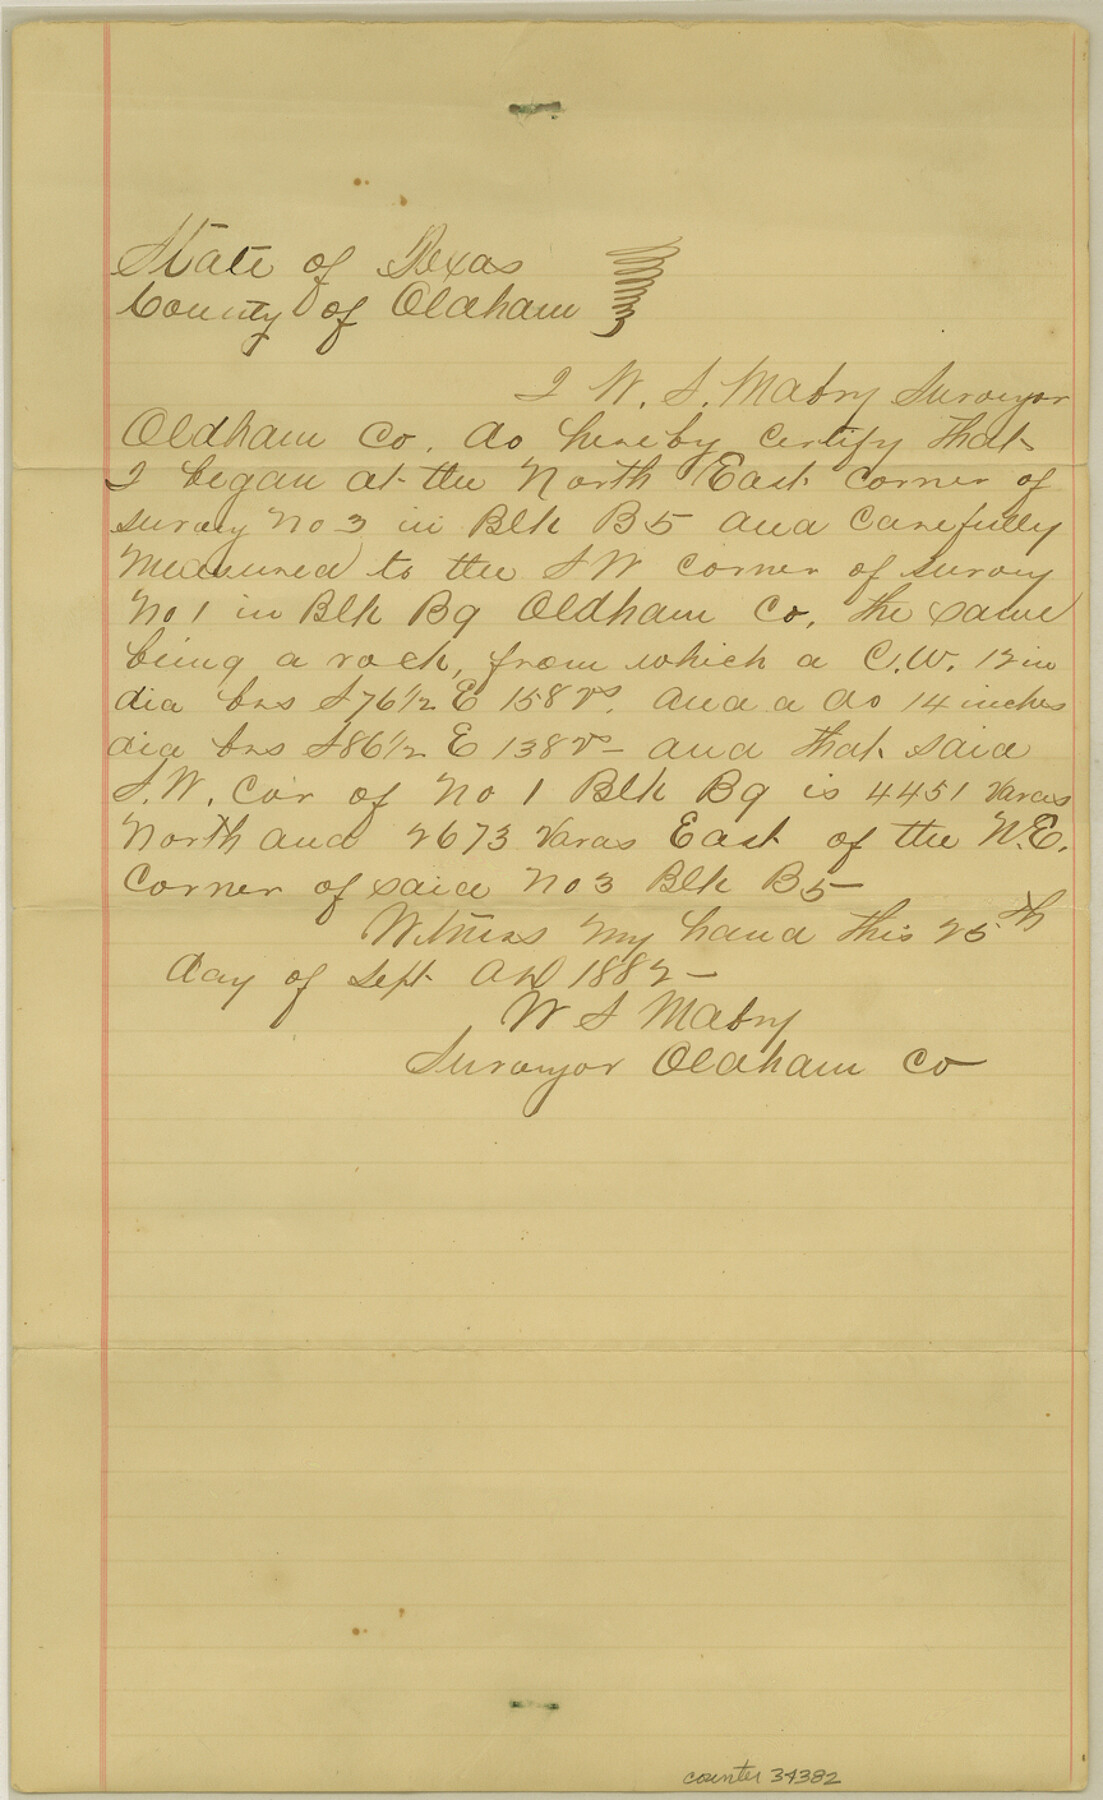 State of Texas
County of Oldham
I W. S. Mabry Surveyor
Oldham Co. do hereby certify that
I began at the North East corner of
survey No 3 in Blk B5 and carefully
measured to the SW corner of survey
No 1 in Blk B9 Oldham Co. the same
being a rock, from which a C.W. 12 in
dia brs S 76 1/2 E 158 vrs. and a do 14 inches
dia brs S 86 1/2 E 138 vrs - and that said
S.W. Cor of No 1 Blk B9 is 4451 varas
North and 2673 varas East of the N.E.
Corner of said No 3 Blk B5 -
Witness my hand this 25th
day of Sept AD 1882 -
W S Mabry
Surveyor Oldham Co
counter 34382